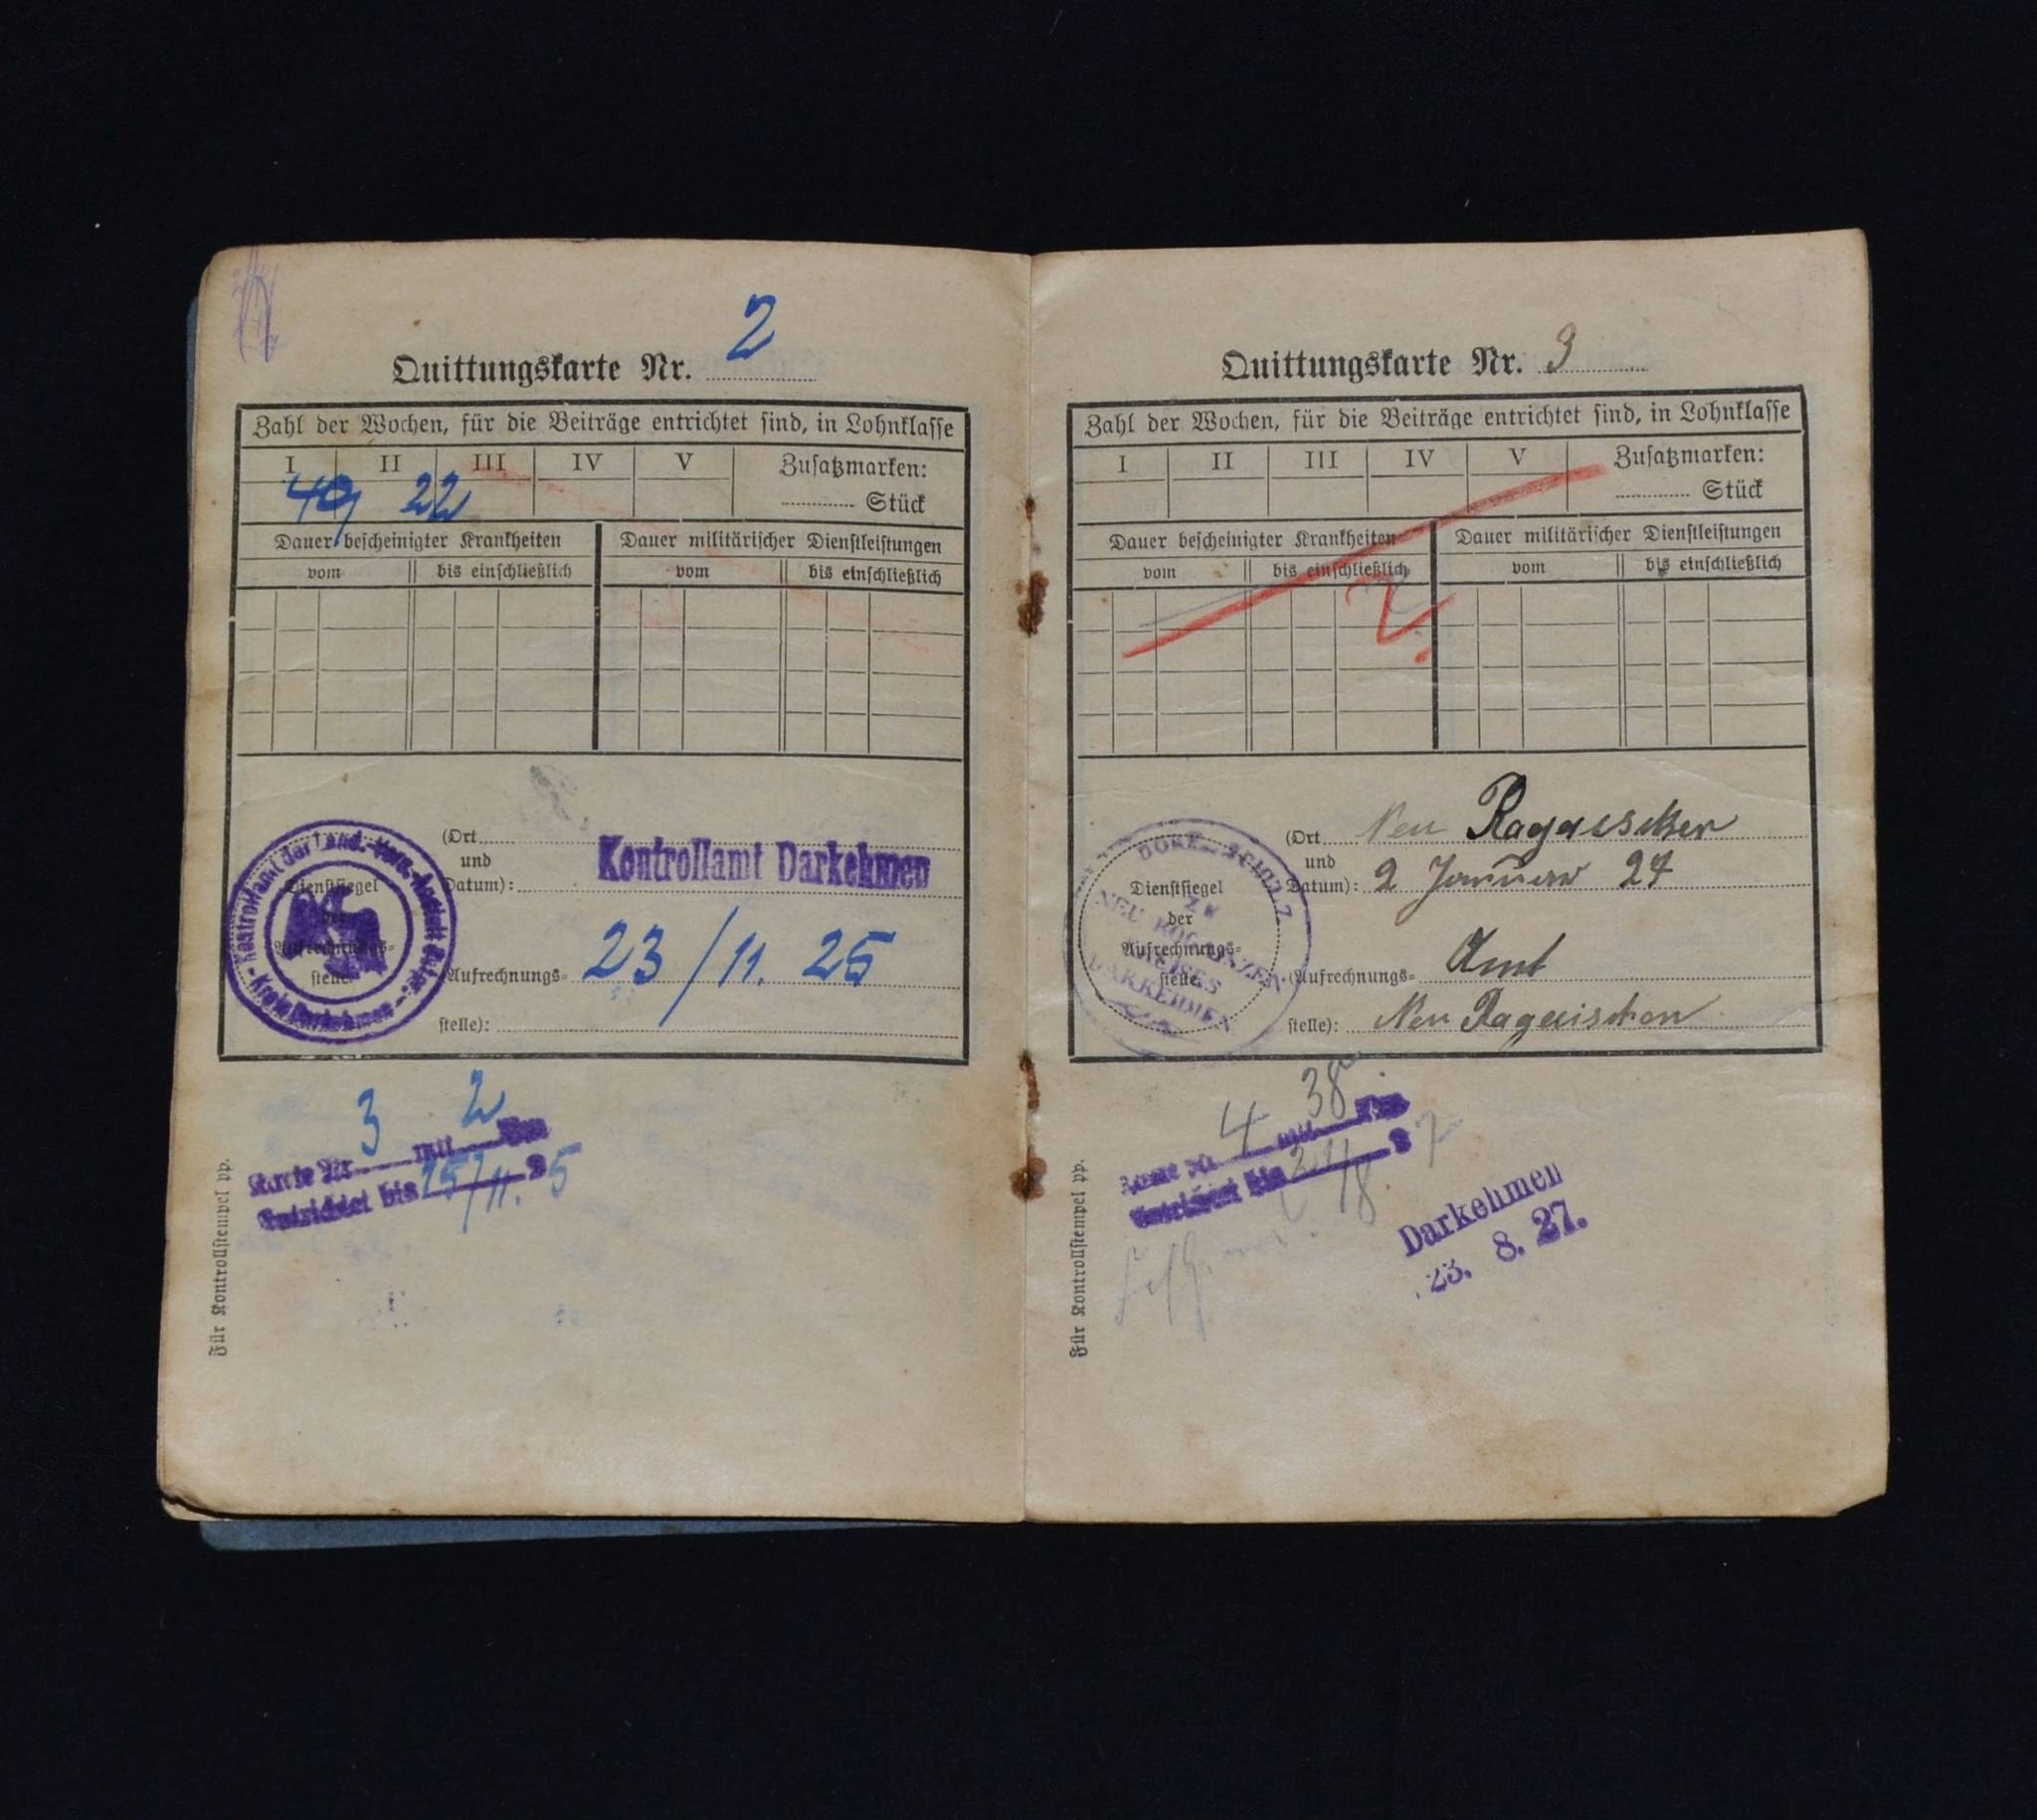 Quittungskarte Nr. 2
Zahl der Wochen, für die Beiträge entrichtet sind, in Lohnklasse
I II III IV V Zusatzmarken:
49 22 Stück
Dauer bescheinigter Krankheiten Dauer militärischer Dienstleistungen
vom bis einschließlich vom bis einschließlich
(Ort
und
Datum): Kontrollamt Darkehmen
Dienstsiegel
der
Aufrechnungs=
stelle
Kontrollamt der Land.-Vers.-Anstalt
Kreis Darkehmen
(Aufrechnungs= 23/11. 25
stelle):
3 2
Karte Nr. mit
Entrichtet bis 25/11. 25
Für Kontrollstempel pp.
Quittungskarte Nr. 3
Zahl der Wochen, für die Beiträge entrichtet sind, in Lohnklasse
I II III IV V Zusatzmarken:
Stück
Dauer bescheinigter Krankheiten Dauer militärischer Dienstleistungen
vom bis einschließlich vom bis einschließlich
(Ort Neu Ragaischen
und
Datum): 2 Januar 27
Dienstsiegel
der
Aufrechnungs=
stelle
NEU
DARKEHMEN
(Aufrechnungs= Amt
stelle): Neu Ragaischen
4 38
Karte Nr. mit
Entrichtet bis 21/8. 27
Darkehmen
23. 8. 27.
Für Kontrollstempel pp.